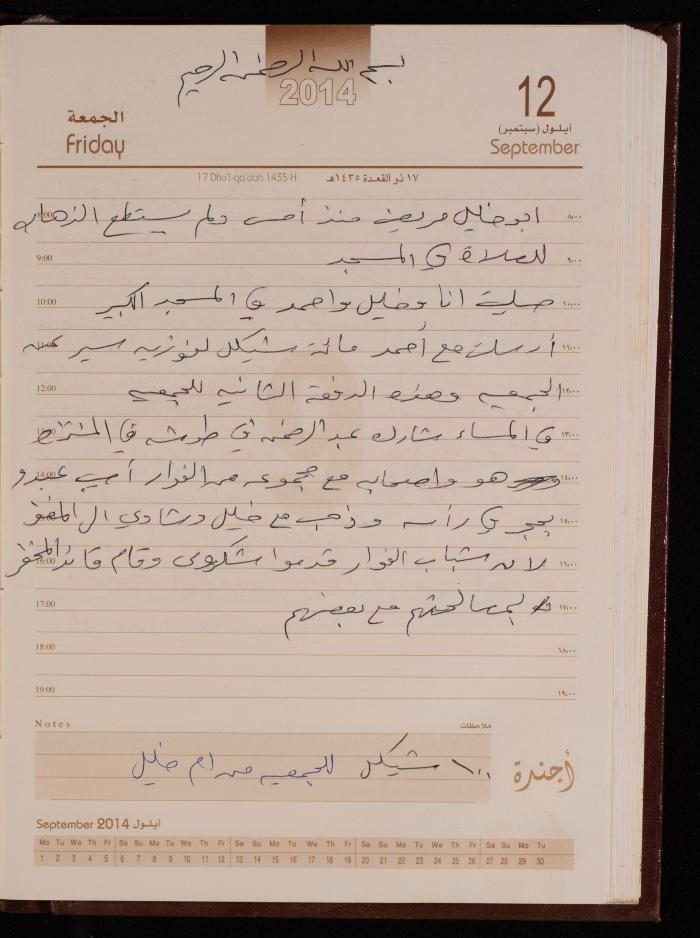 بسم الله الرحمن الرحيم
2014
الجمعة
Friday
12
أيلول (سبتمبر)
September
17 Dhu'l-qa'dah 1435 H
١٧ ذو القعدة ١٤٣٥هـ
8:00 ابو خليل مريض منذ أمس ولم يستطع الذهاب ٨:٠٠
9:00 للصلاة في المسجد
10:00 صليت انا وخليل واحمد في المسجد الكبير ١٠:٠٠
11:00 أرسلت مع أحمد مائة شيكل لفوزيه سير عن ١١:٠٠
12:00 الجمعيه وهذه الدفعة الثانيه للجمعيه ١٢:٠٠
13:00 في المساء شارك عبد الرحمن في طوشه في المنتزه ١٣:٠٠
14:00 هو واصحابه مع مجموعه من الفوار أصيب عبدو ١٤:٠٠
بحجر في رأسه وذهب مع خليل وشادي الى المخفر ١٥:٠٠
16:00 لان شباب الفوار قدموا شكوى وقام قائد المخفر ١٦:٠٠
17:00 بمصالحتهم مع بعضهم ١٧:٠٠
18:00 ١٨:٠٠
19:00 ١٩:٠٠
Notes ملاحظات
١٠٠ شيكل للجمعيه من ام خليل
أجندة
September 2014 أيلول
Mo Tu We Th Fr Sa Su Mo Tu We Th Fr Sa Su Mo Tu We Th Fr Sa Su Mo Tu We Th Fr Sa Su Mo Tu
1 2 3 4 5 6 7 8 9 10 11 12 13 14 15 16 17 18 19 20 21 22 23 24 25 26 27 28 29 30